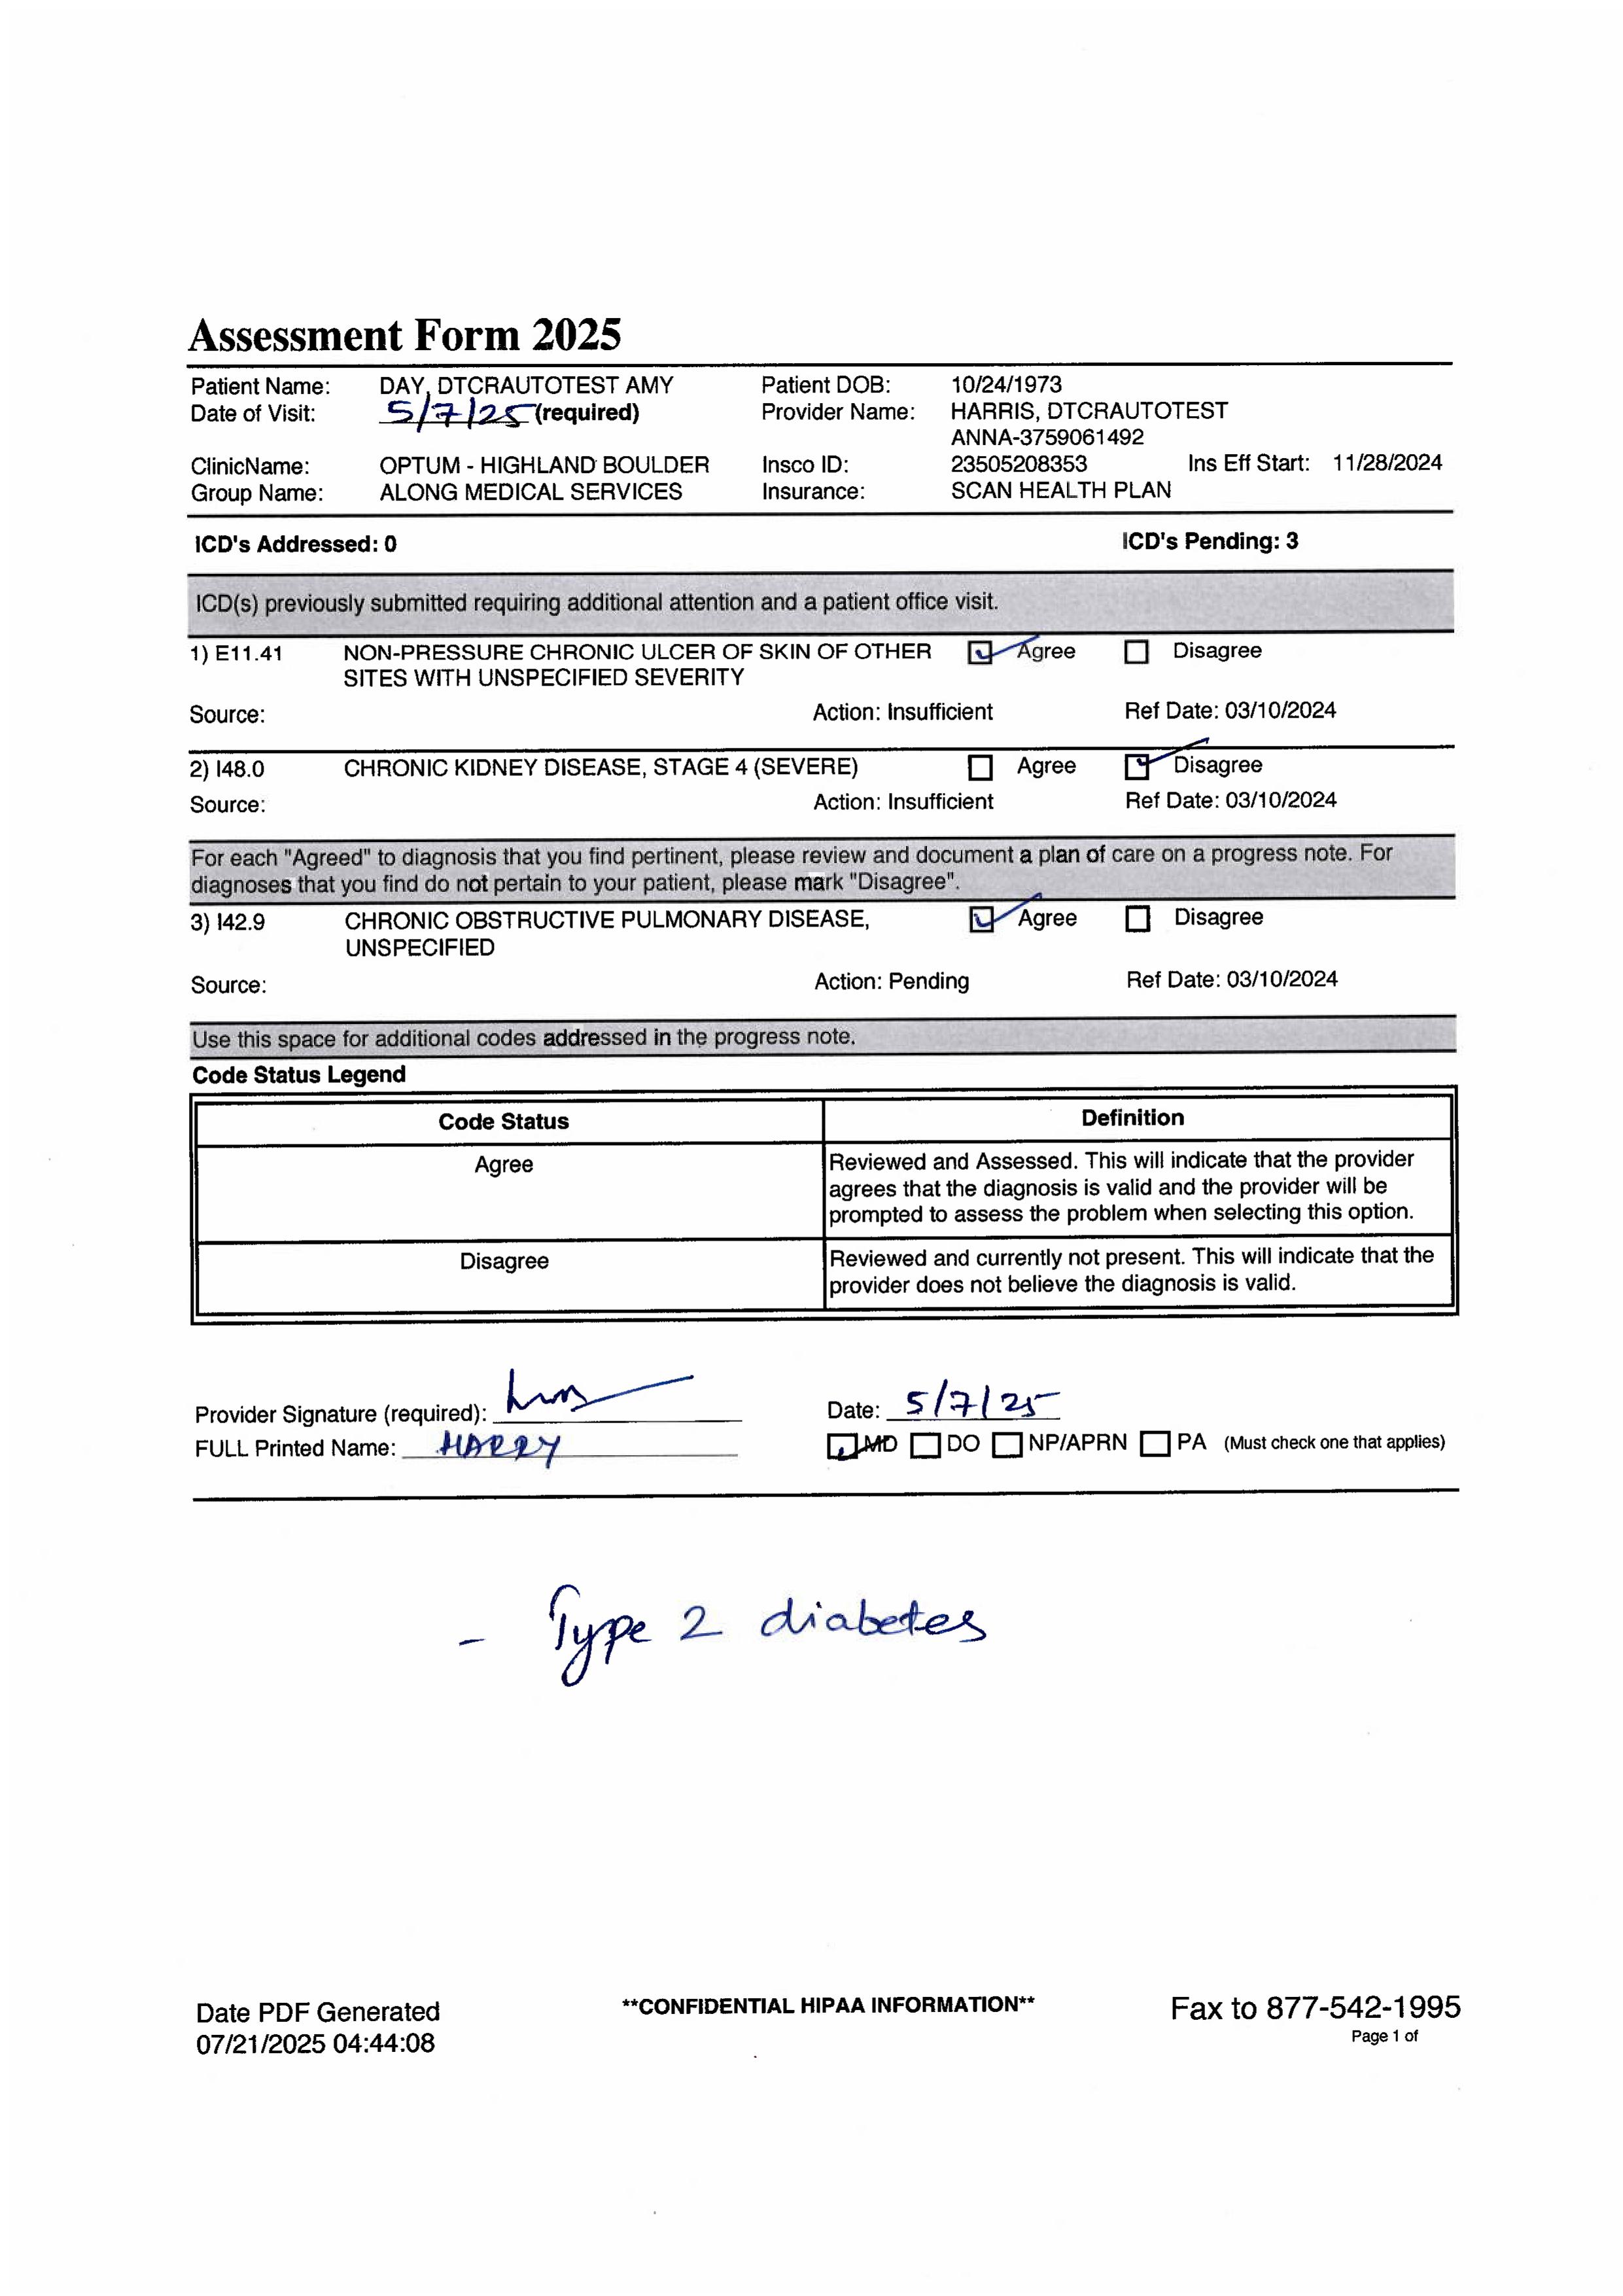 Assessment Form 2025
Patient Name: DAY, DTCRAUTOTEST AMY Patient DOB: 10/24/1973
Date of Visit: 5/7/25 (required) Provider Name: HARRIS, DTCRAUTOTEST
ANNA-3759061492
ClinicName: OPTUM - HIGHLAND BOULDER Insco ID: 23505208353 Ins Eff Start: 11/28/2024
Group Name: ALONG MEDICAL SERVICES Insurance: SCAN HEALTH PLAN
ICD's Addressed: 0 ICD's Pending: 3
ICD(s) previously submitted requiring additional attention and a patient office visit.
1) E11.41 NON-PRESSURE CHRONIC ULCER OF SKIN OF OTHER Agree Disagree
SITES WITH UNSPECIFIED SEVERITY
Source: Action: Insufficient Ref Date: 03/10/2024
2) I48.0 CHRONIC KIDNEY DISEASE, STAGE 4 (SEVERE) Agree Disagree
Source: Action: Insufficient Ref Date: 03/10/2024
For each "Agreed" to diagnosis that you find pertinent, please review and document a plan of care on a progress note. For
diagnoses that you find do not pertain to your patient, please mark "Disagree".
3) I42.9 CHRONIC OBSTRUCTIVE PULMONARY DISEASE, Agree Disagree
UNSPECIFIED
Source: Action: Pending Ref Date: 03/10/2024
Use this space for additional codes addressed in the progress note.
Code Status Legend
Code Status Definition
Agree Reviewed and Assessed. This will indicate that the provider
agrees that the diagnosis is valid and the provider will be
prompted to assess the problem when selecting this option.
Disagree Reviewed and currently not present. This will indicate that the
provider does not believe the diagnosis is valid.
Provider Signature (required): Date: 5/7/25
FULL Printed Name: HARRY MD DO NP/APRN PA (Must check one that applies)
- Type 2 diabetes
Date PDF Generated **CONFIDENTIAL HIPAA INFORMATION** Fax to 877-542-1995
07/21/2025 04:44:08 Page 1 of